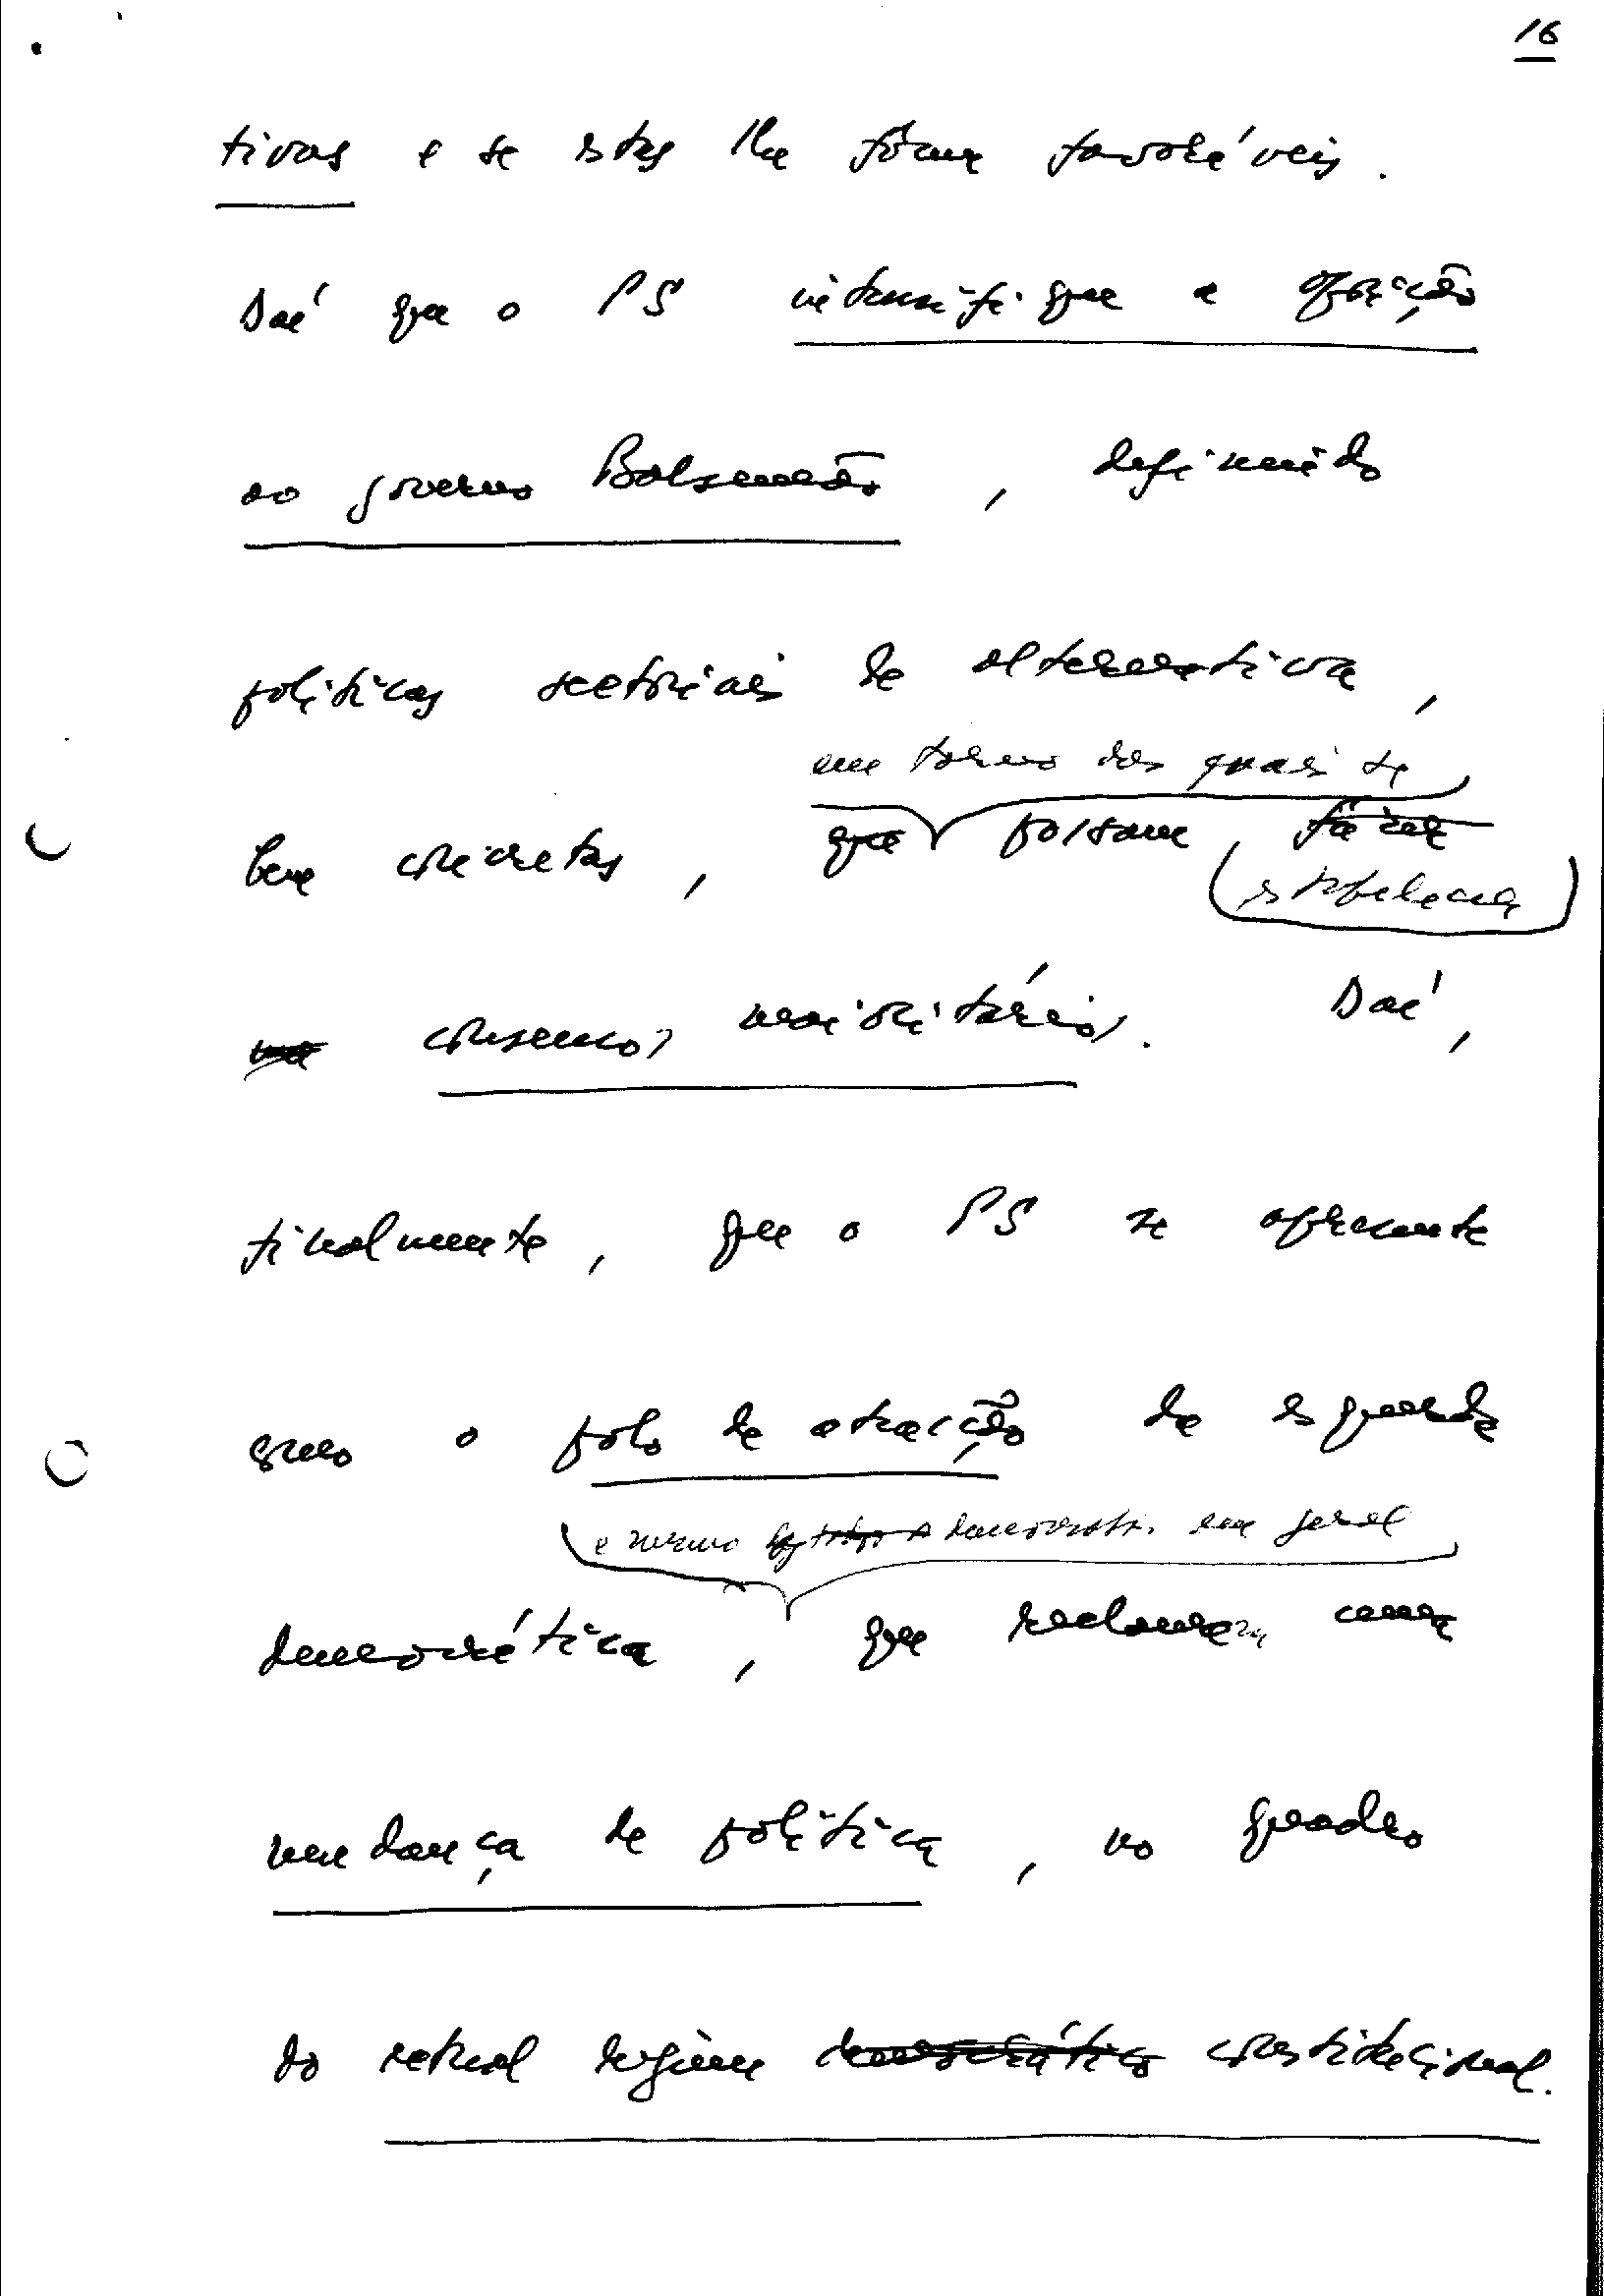 16
tivas e se estas lhe forem favoráveis.
Daí que o PS intensifique a oposição
ao governo Balsemão, definindo
políticas sectoriais de alternativa,
em torno das quais se
bem concretas, que possam, fazer
estabelecer
um consensos maioritários. Daí,
finalmente, que o PS se apresente
como o polo de atracção da esquerda
e mesmo dos todos democratas em geral
democrática, que reclamam uma
mudança de política, no quadro
do actual regime democrático constitucional.